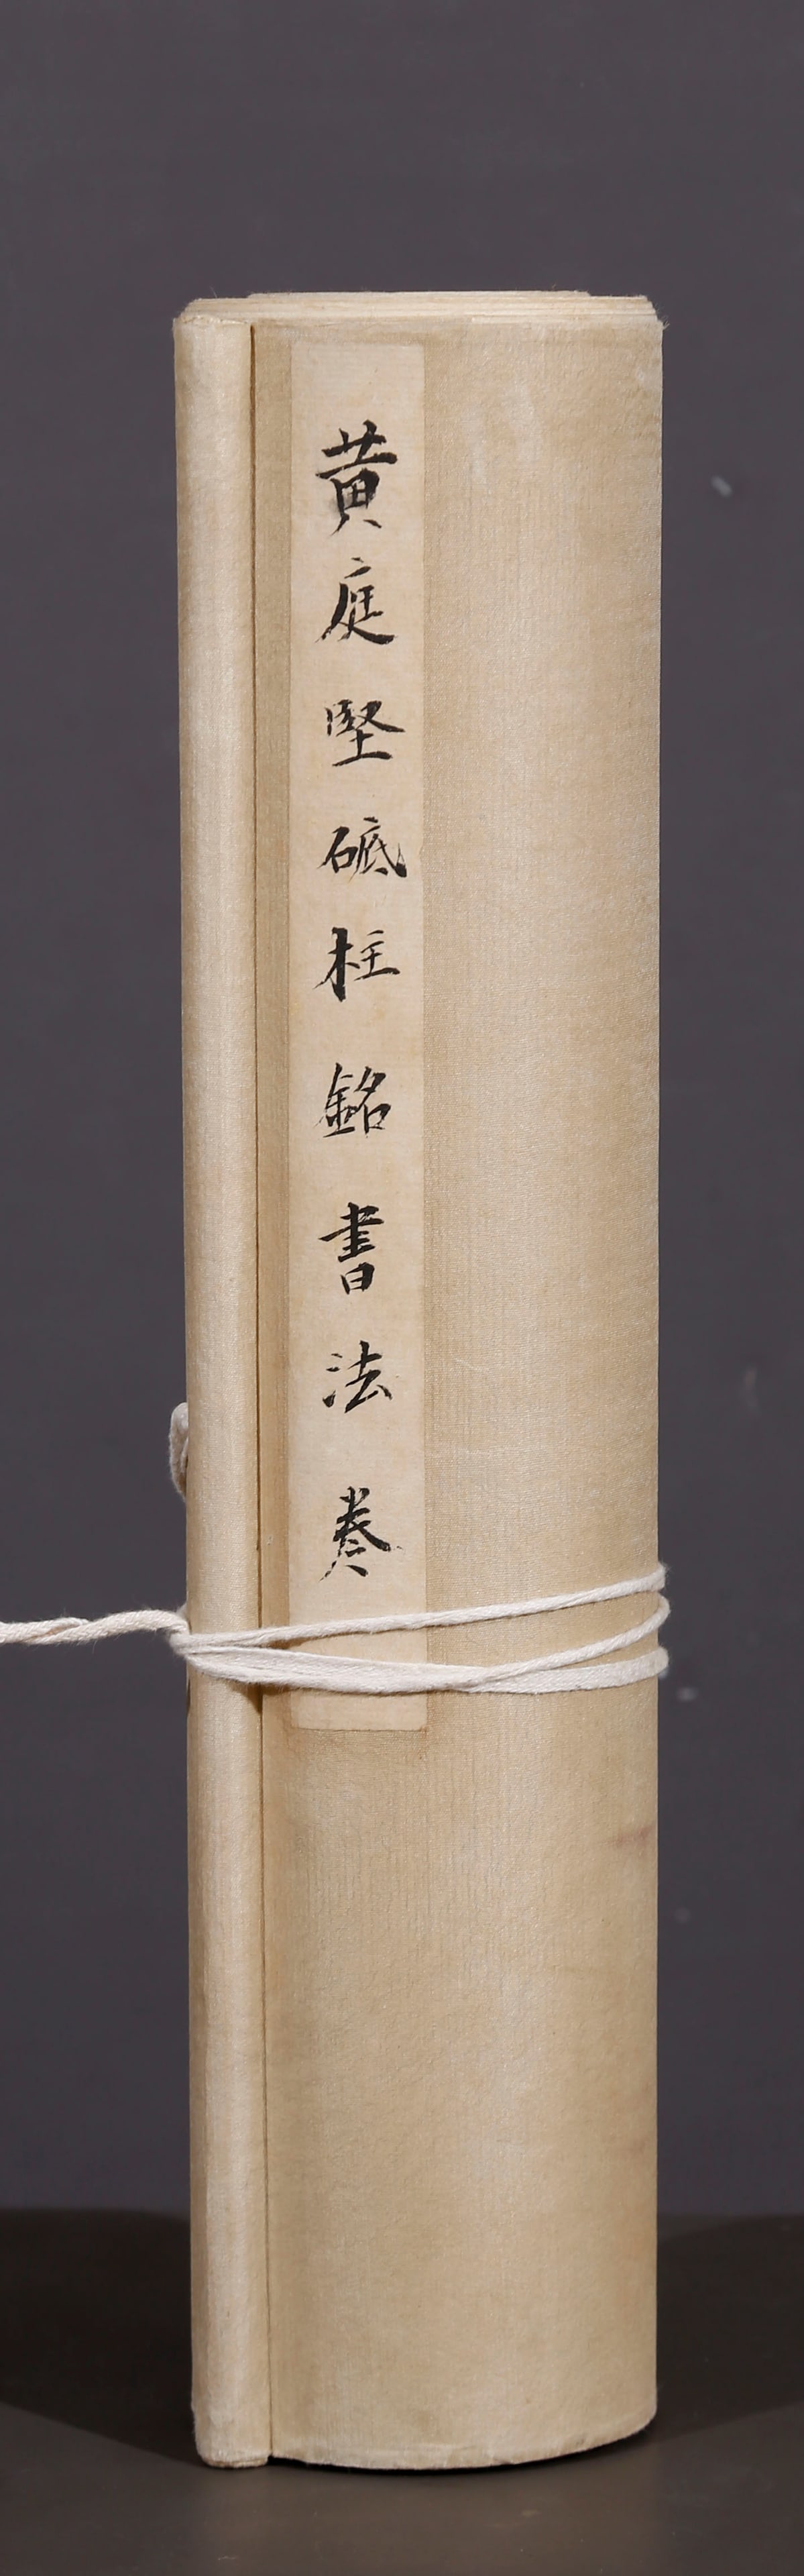 黃庭堅砥柱銘書法卷